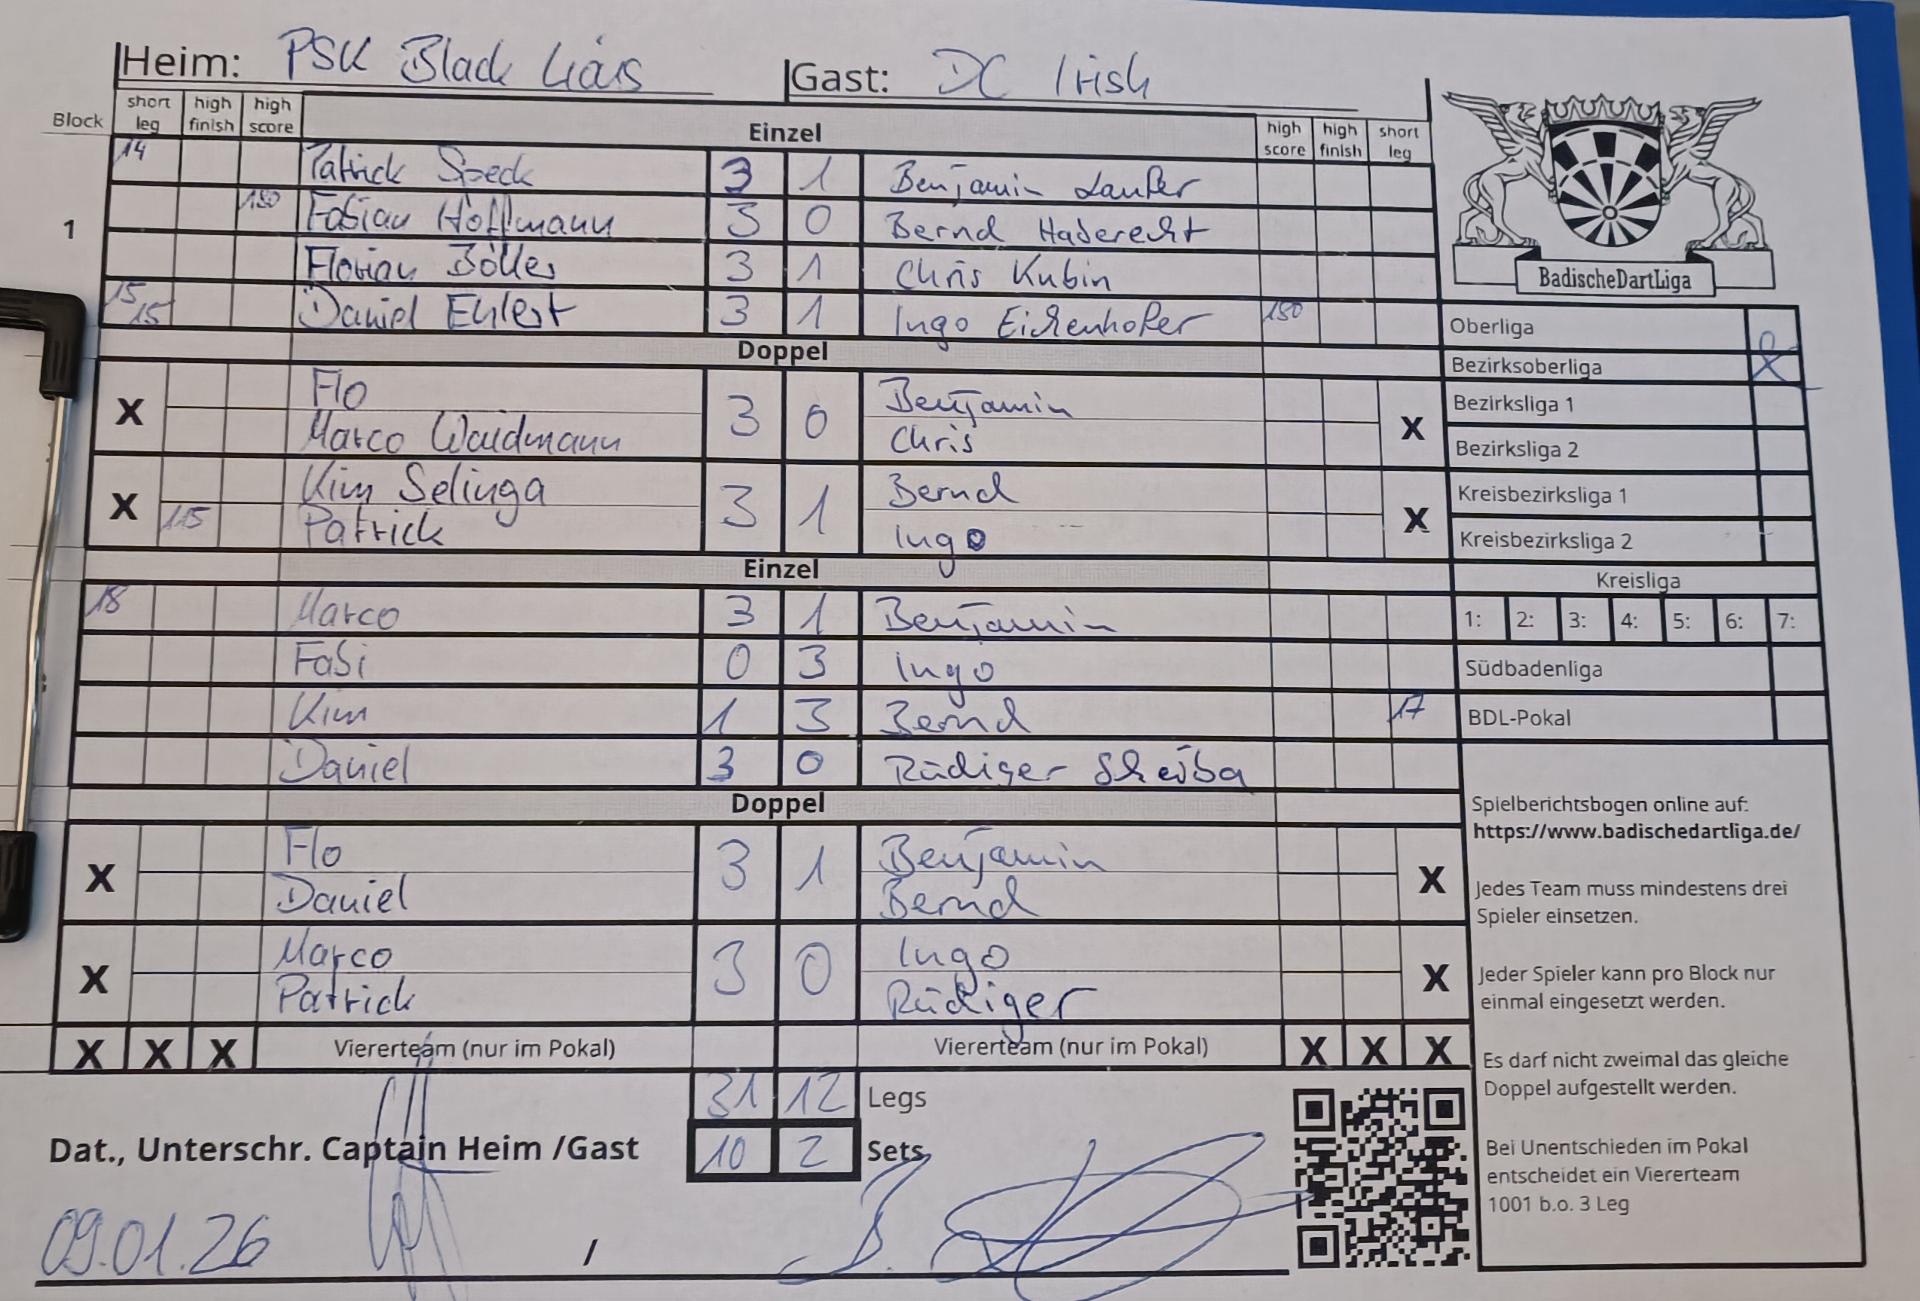 Heim: PSK Black Liáis Gast: DC Irish
Block short leg high finish high score Einzel high score high finish short leg
14 Patrick Speck 3 1 Benjamin Laufer
1 180 Fabian Hoffmann 3 0 Bernd Haderecht
Florian Böller 3 1 Chris Kubin
15 15 Daniel Ehlert 3 1 Ingo Eichenhofer 180
Doppel
X Flo 3 0 Benjamin X
Marco Waidmann Chris
X Kim Selinga 3 1 Bernd X
115 Patrick Ingo
Einzel
18 Marco 3 1 Benjamin
Fabi 0 3 Ingo
Kim 1 3 Bernd 17
Daniel 3 0 Rüdiger Scheiba
Doppel
X Flo 3 1 Benjamin X
Daniel Bernd
X Marco 3 0 Ingo X
Patrick Rüdiger
X X X Viererteam (nur im Pokal) Viererteam (nur im Pokal) X X X
31 12 Legs
Dat., Unterschr. Captain Heim /Gast 10 2 Sets
09.01.26 /
BadischeDartLiga
Oberliga
Bezirksoberliga
Bezirksliga 1
Bezirksliga 2
Kreisbezirksliga 1
Kreisbezirksliga 2
Kreisliga
1: 2: 3: 4: 5: 6: 7:
Südbadenliga
BDL-Pokal
Spielberichtsbogen online auf:
https://www.badischedartliga.de/
Jedes Team muss mindestens drei
Spieler einsetzen.
Jeder Spieler kann pro Block nur
einmal eingesetzt werden.
Es darf nicht zweimal das gleiche
Doppel aufgestellt werden.
Bei Unentschieden im Pokal
entscheidet ein Viererteam
1001 b.o. 3 Leg